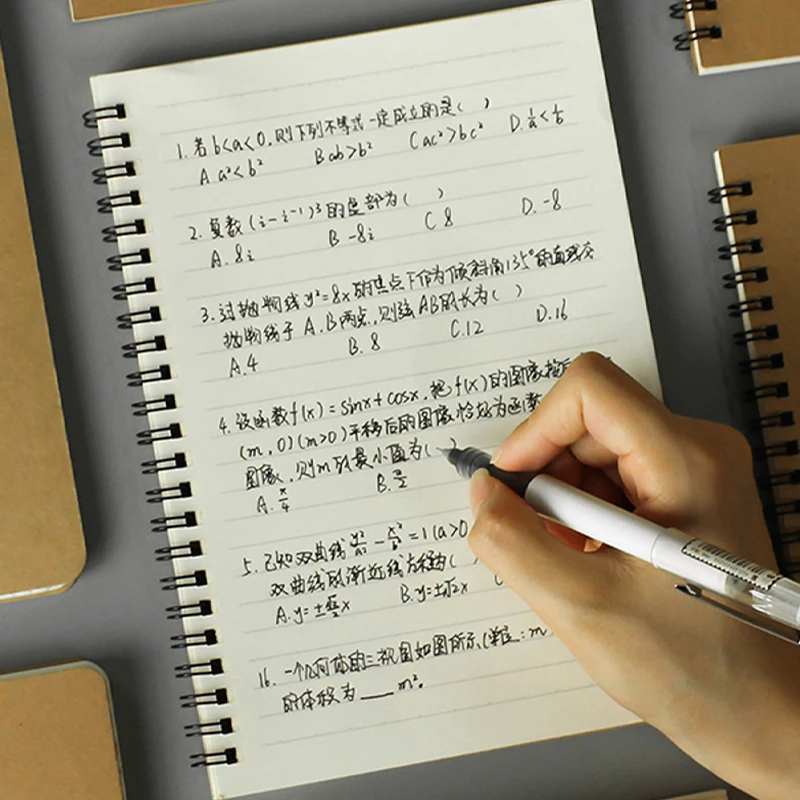 1. 若 b<a<0, 则下列不等式一定成立的是( )
A. a²<b² B ab>b² C ac²>bc² D. 1/a<1/b
2. 复数 (i-i⁻¹)³的虚部为( )
A. 8i B. -8i C 8 D. -8
3. 过抛物线 y²=8x 的焦点下作为倾斜角135°的直线交
抛物线于 A.B两点,则弦AB的长为( )
A.4 B. 8 C.12 D.16
4. 设函数f(x)=sinx+cosx, 把f(x)的图像按
(m,0)(m>0)平移后的图像恰好为函数
图像, 则m的最小值为( )
A. π/4 B. π/2
5. 已知双曲线 y²/a² - x²/b² =1(a>0
双曲线的渐近线方程为(
A. y=±√2/2x B. y=±√2x
16. 一个几何体的三视图如图所示(单位:m
的体积为 ___ m².